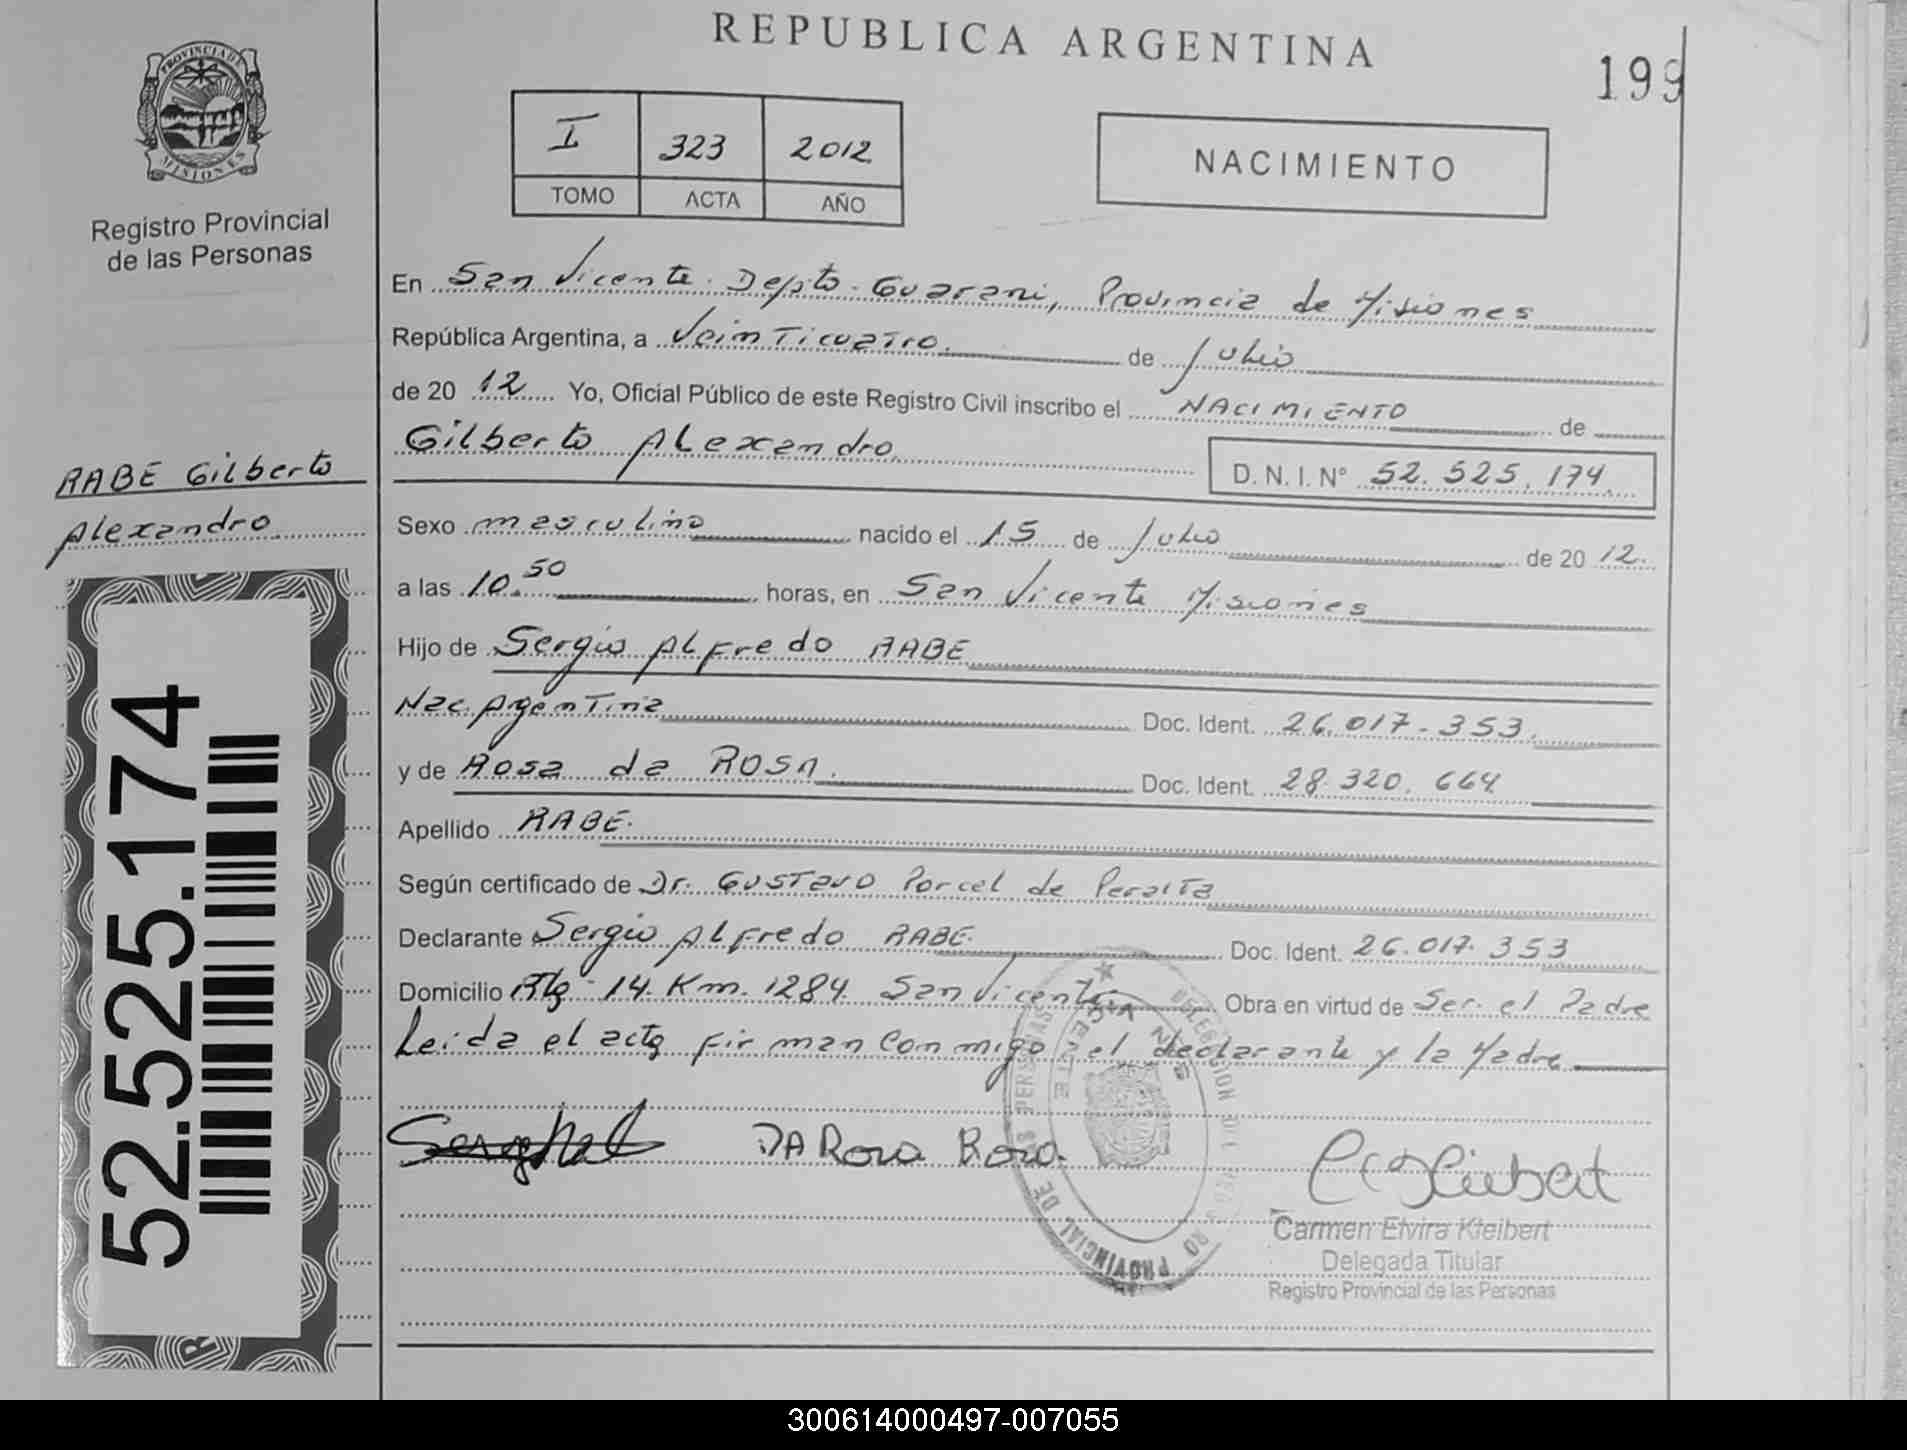 REPUBLICA ARGENTINA
199
PROVINCIA DE
MISIONES
Registro Provincial
de las Personas
I 323 2012
TOMO ACTA AÑO
NACIMIENTO
En San Vicente. Depto. Guarani, Provincia de Misiones
República Argentina, a Veinticuatro de Julio
de 20 12 Yo, Oficial Público de este Registro Civil inscribo el NACIMIENTO de
Gilberto Alexandro D. N. I. Nº 52.525.174
RABE Gilberto
Alexandro
Sexo masculino nacido el 15 de Julio de 20 12.
a las 10.50 horas, en San Vicente Misiones
Hijo de Sergio Alfredo RABE
Nac. Argentina Doc. Ident. 26.017.353
y de Rosa da ROSA. Doc. Ident. 28.320.664
Apellido RABE.
Según certificado de Dr. Gustavo Porcel de Peralta
Declarante Sergio Alfredo RABE. Doc. Ident. 26.017.353
Domicilio Rta 14. Km. 1284. San Vicente Obra en virtud de Ser. el Padre
Leida el acta firman conmigo el declarante y la Madre
52.525.174
DA Rosa Rosa.
DELEGACION
SAN VICENTE
REGISTRO PROVINCIAL DE LAS PERSONAS
Carmen Elvira Kleibert
Delegada Titular
Registro Provincial de las Personas
300614000497-007055